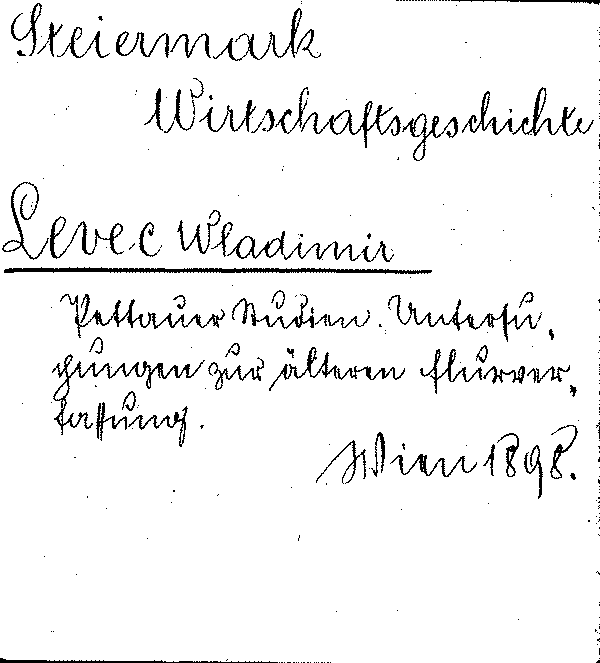 Steiermark
Wirtschaftsgeschichte
Levec Wladimir
Pettauer Studien. Untersu-
chungen zur älteren Flurver-
fassung.
Wien 1898.